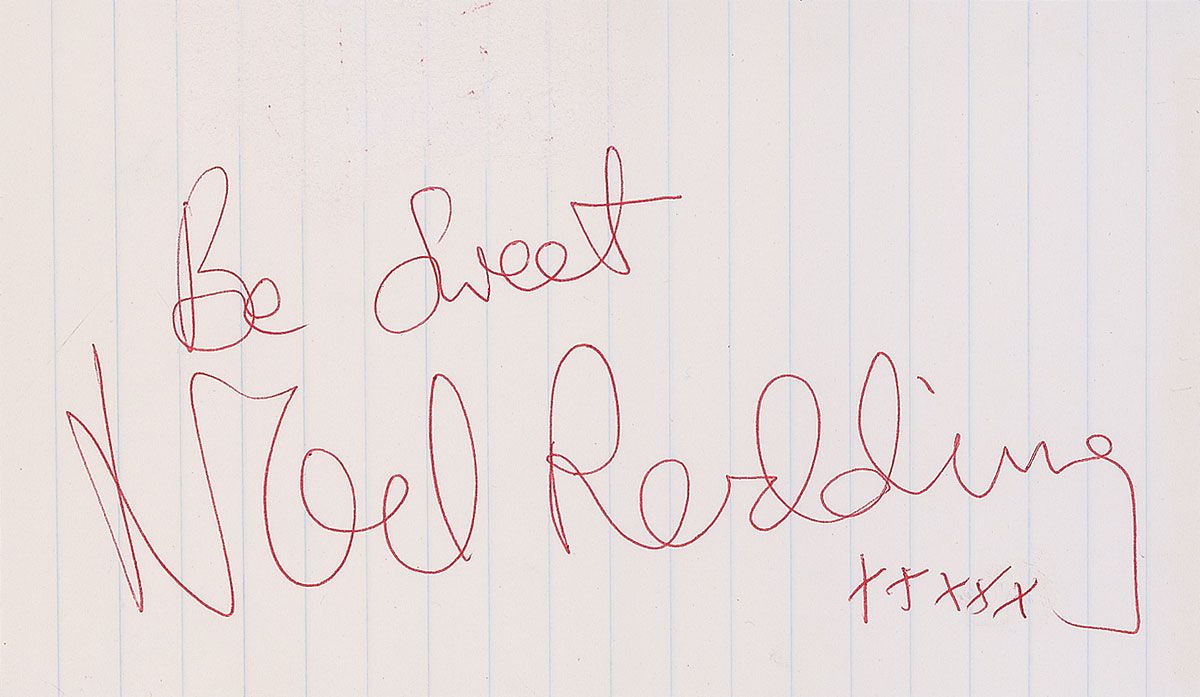 Be Sweet
Noel Redding
xxxxx